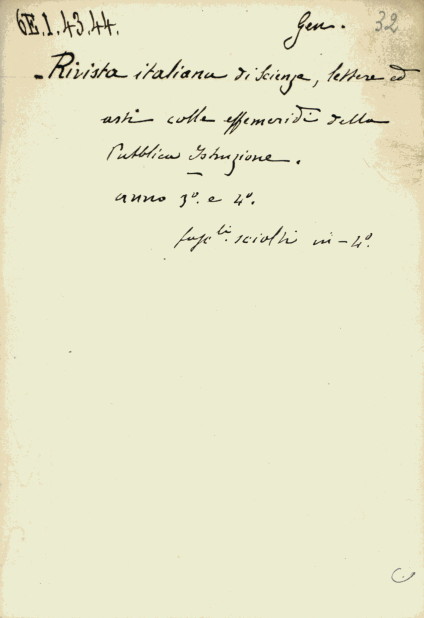 6E.I.43.44. Gen. 32
- Rivista italiana di Scienze, lettere ed
arti colle effemeridi della
Pubblica Istruzione.
anno 3º. e 4º.
fasc.li sciolti in-4º.